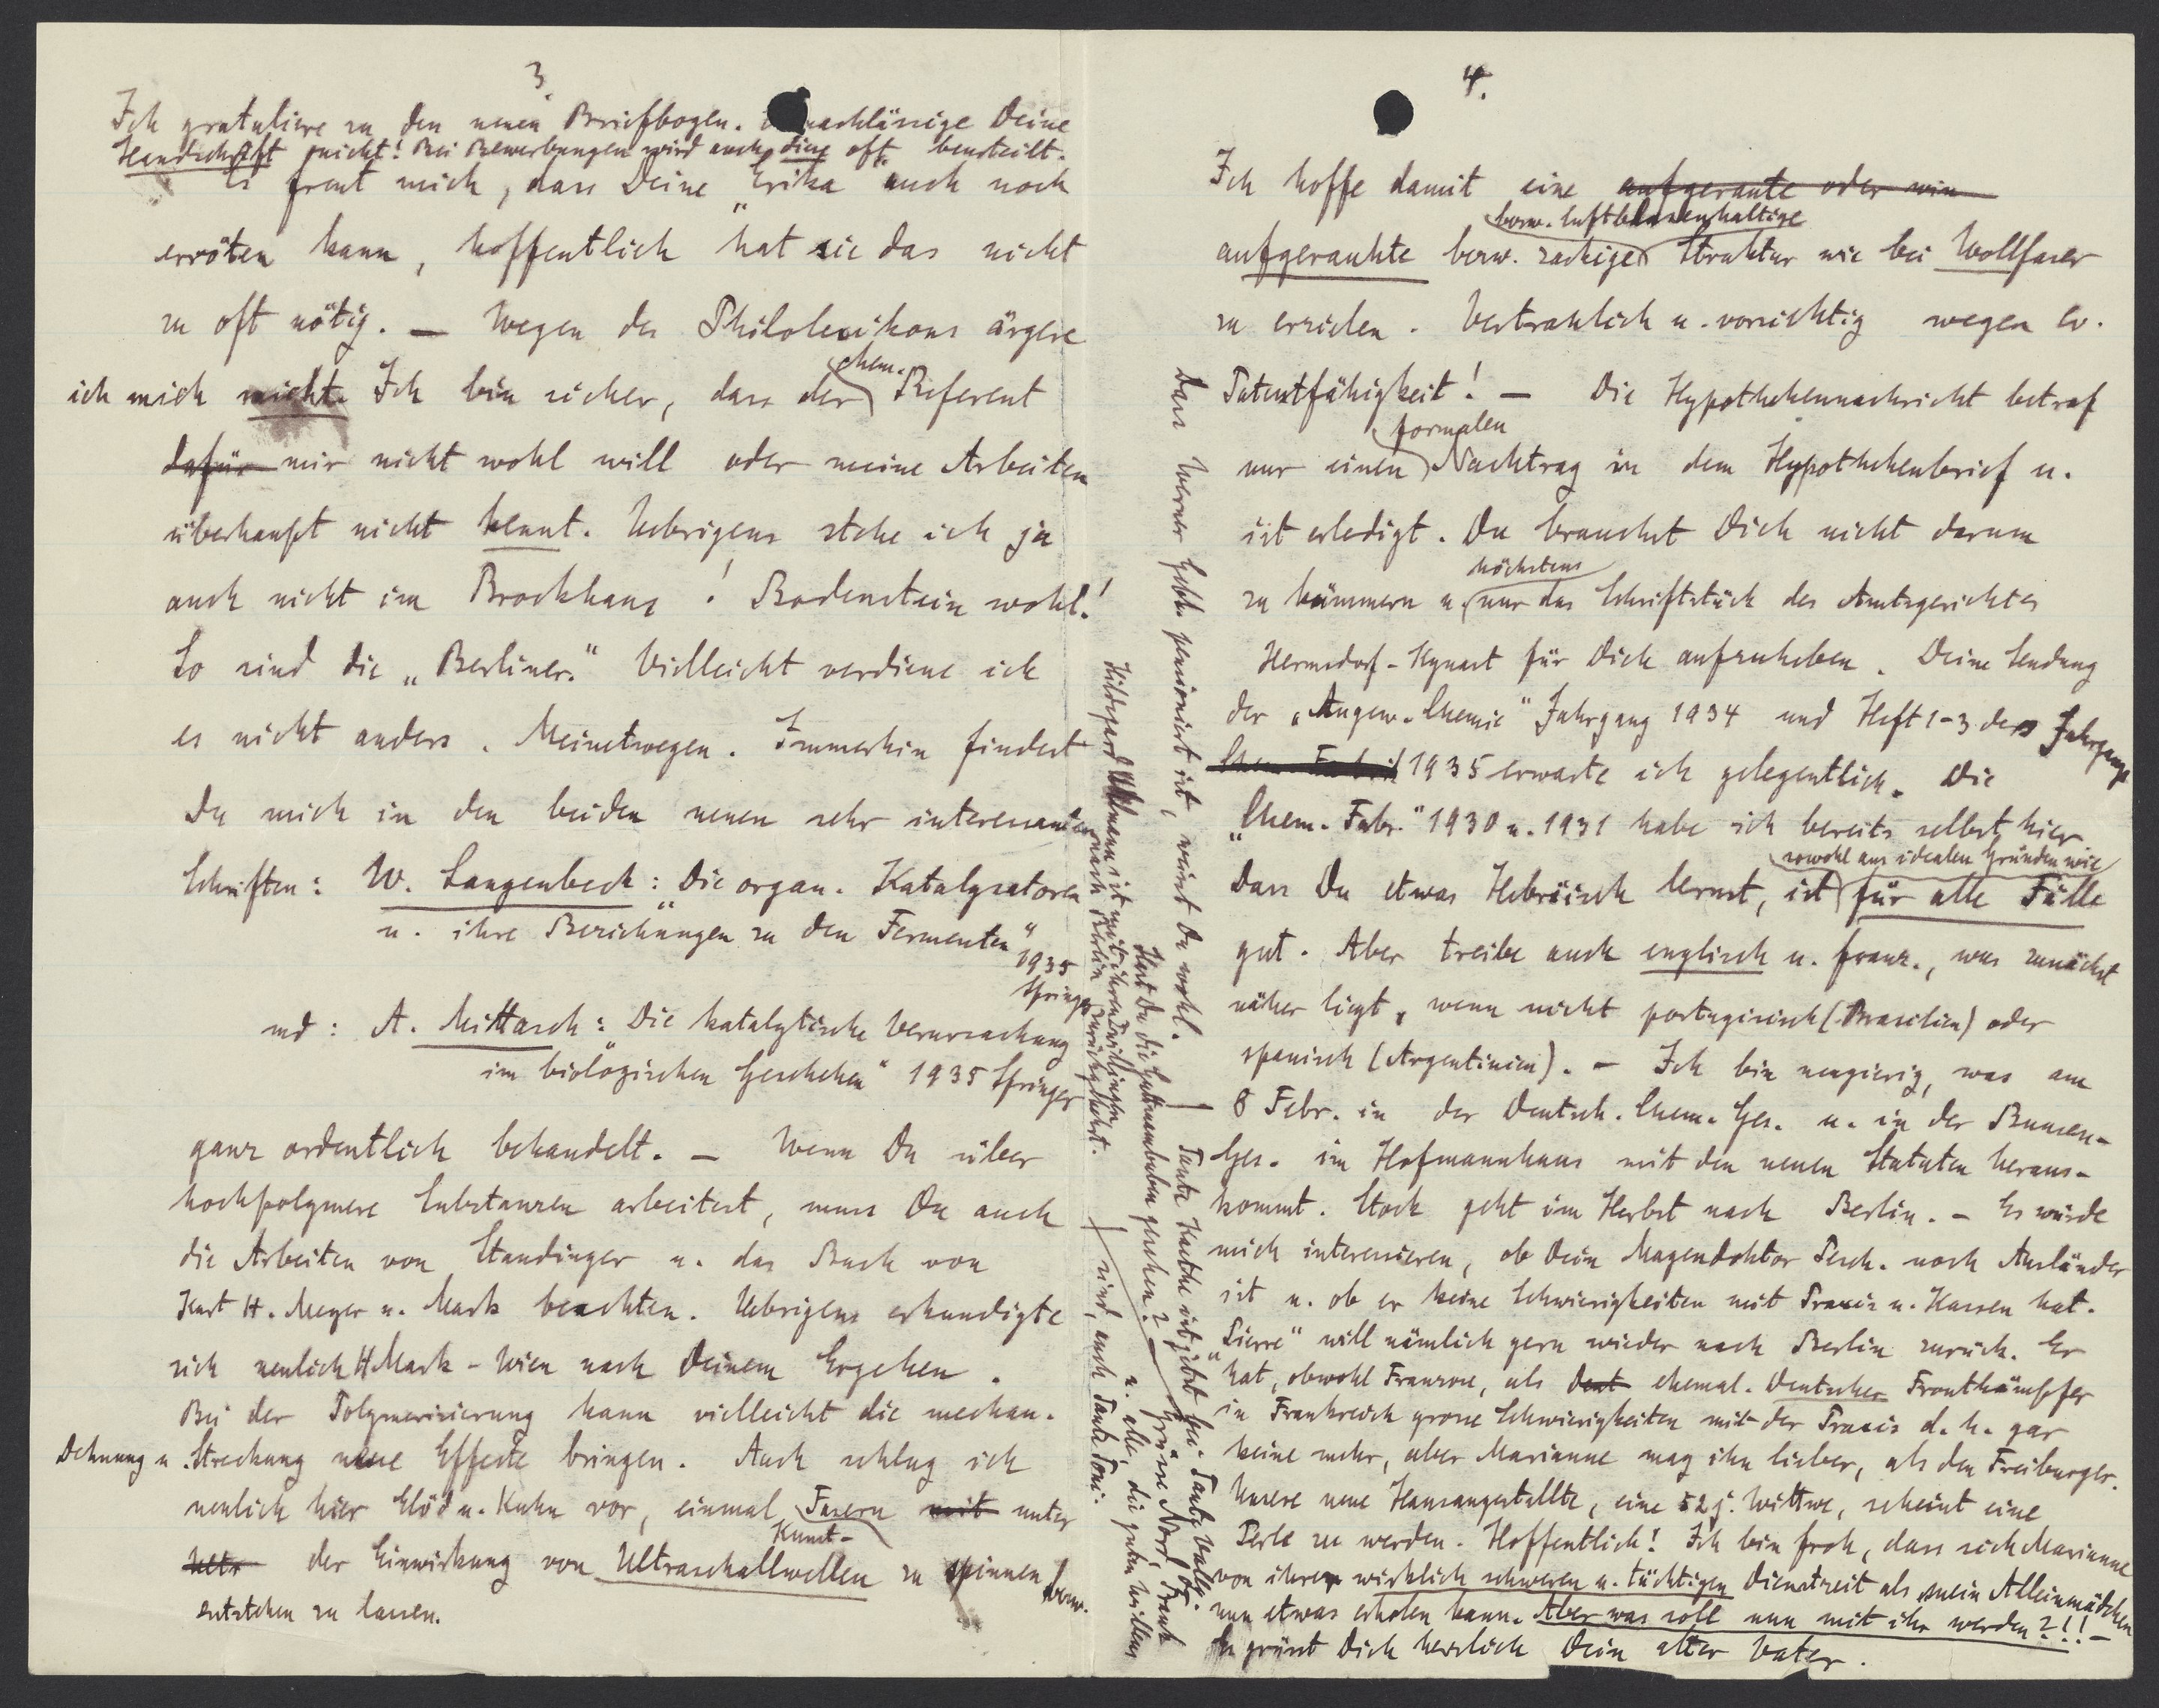 3.
Ich gratuliere zu den neuen Briefbogen. nachlässige Deine
Handschrift nicht! Bei Bewerbungen wird auch diese oft beurteilt.
Es freut mich, dass Deine "Erika" auch noch
erröten kann, hoffentlich hat sie das nicht
zu oft nötig. — Wegen des Philolexikons ärgere
ich mich nicht. Ich bin sicher, dass der chem. Referent
dafür mir nicht wohl will oder meine Arbeiten
überhaupt nicht kennt. Uebrigens stehe ich ja
auch nicht im Brockhaus! Bodenstein wohl!
So sind die „Berliner." Vielleicht verdiene ich
es nicht anders. Meinetwegen. Immerhin findest
Du mich in den beiden neuen sehr interessanten
Schriften: W. Langenbeck: Die organ. Katalysatoren
u. ihre Beziehungen zu den Fermenten" 1935 Springer
und: A. Mittasch: Die katalytische Verursachung
im biologischen Geschehen" 1935 Springer
ganz ordentlich behandelt. — Wenn Du über
hochpolymere Substanzen arbeitest, muss Du auch
die Arbeiten von Staudinger u. das Buch von
Kurt H. Meyer u. Mark beachten. Uebrigens erkundigte
sich neulich H Mark - Wien nach Deinem Ergehen.
Bei der Polymerisierung kann vielleicht die mechan.
Dehnung u. Streckung neue Effecte bringen. Auch schlug ich
neulich hier Elöd u. Kuhn vor, einmal Kunst-Fasern mit unter
Ultr der Einwirkung von Ultraschallwellen zu spinnen bzw.
entstehen zu lassen.
Hildegard Uhlmann ist mit ihren Zwillingen
nach Berlin zurückgekehrt.
4.
Ich hoffe damit eine aufgeraute oder wie
bezw. luftblasenhaltige
aufgerauhte bezw. zackige Struktur wie bei Wollfaser
zu erzielen. Vertraulich u. vorsichtig wegen ev.
Patentfähigkeit! — Die Hypothekennachricht betraf
nur einen formalen Nachtrag in dem Hypothekenbrief u.
ist erledigt. Du brauchst Dich nicht darum
zu kümmern u. höchstens nur das Schriftstück des Amtsgerichtes
Hermsdorf-Kynast für Dich aufzuheben. Deine Sendung
der „Angew. Chemie" Jahrgang 1934 und Heft 1-3 des Jahrgangs
Chem. Fabrik 1935 erwarte ich gelegentlich. Die
„Chem. Fabr." 1930 u. 1931 habe ich bereits selbst hier
Dass Du etwas Hebräisch lernst, ist sowohl aus idealen Gründen wie für alle Fälle
gut. Aber treibe auch englisch u. franz., was zunächst
näher liegt, wenn nicht portugisisch (Brasilien) oder
spanisch (Argentinien). — Ich bin neugierig, was am
8 Febr. in der Deutsch. Chem. Ges. u. in der Bunsen-
Ges. im Hofmannhaus mit den neuen Statuten heraus-
kommt. Stock geht im Herbst nach Berlin. — Es würde
mich interessieren, ob Dein Magendoktor Pesch. noch Ausländer
ist u. ob er keine Schwierigkeiten mit Praxis u. Kassen hat.
„Pierre" will nämlich gern wieder nach Berlin zurück. Er
hat, obwohl Franzose, als Deut ehemal. Deutscher Frontkämpfer
in Frankreich grosse Schwierigkeiten mit der Praxis d. h. gar
keine mehr, aber Marianne mag ihn lieber, als den Freiburger.
Unsere neue Hausangestellte, eine 52 j. Wittwe, scheint eine
Perle zu werden. Hoffentlich! Ich bin froh, dass sich Marianne
von ihrer wirklich schweren u. tüchtigen Dienstzeit als mein Alleinmädchen
nun etwas erholen kann. Aber was soll nun mit ihr werden?!! —
Es grüsst Dich herzlich Dein alter Vater.
Dass Werner Gebh. pensioniert ist, weisst Du wohl.
Tante Käthe ist jetzt bei Tante Vally.
Hast Du die gesehen? — Grüsse Nord, Frank
u. alle, die guten Willens
sind, auch Tante Toni.